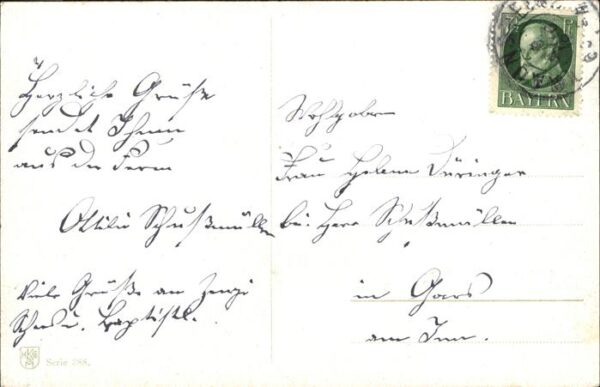 Herzliche Grüße
sendet Ihnen
aus der Ferne
Ottilie Schußmüller
Viele Grüße an Zenzi
u. Baptist.
Wohlgeboren
Frau Helene Düringer
bei Herr Schußmüller
in Gars
am Inn.
BAYERN
Serie 288.